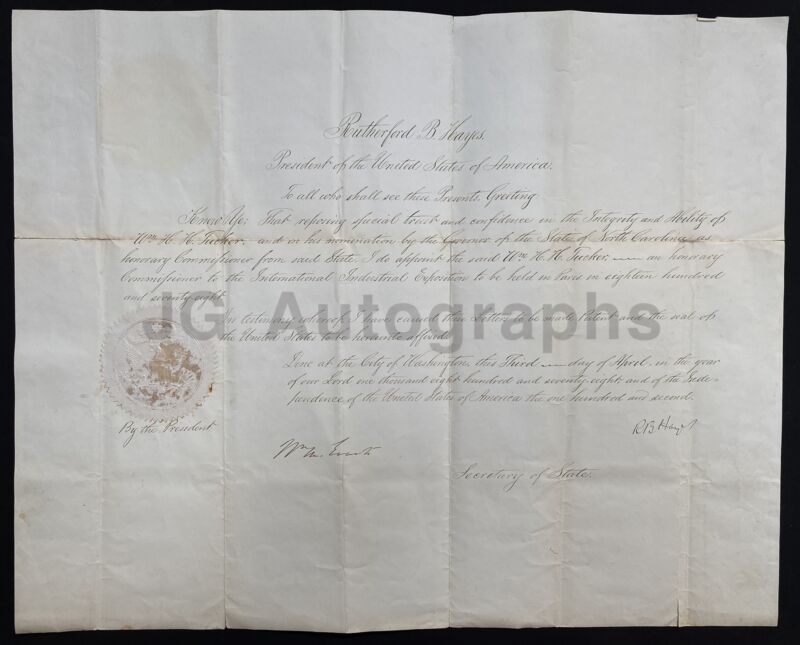 Rutherford B. Hayes.
President of the United States of America.
To all who shall see these Presents, Greeting
Know Ye; That reposing special trust and confidence in the Integrity and Ability of
Wm H. H. Tucker, and on his nomination by the Governor of the State of North Carolina as
honorary Commissioner from said State I do appoint the said Wm H. H. Tucker, an honorary
Commissioner to the International Industrial Exposition to be held in Paris in eighteen hundred
and seventy eight.
In testimony whereof I have caused these Letters to be made Patent and the seal of
the United States to be hereunto affixed.
JG Autographs
Done at the City of Washington, this Third day of April, in the year
of our Lord one thousand eight hundred and seventy eight and of the Inde-
pendence of the United States of America the one hundred and second.
By the President
R B Hayes
Wm M. Evarts
Secretary of State.